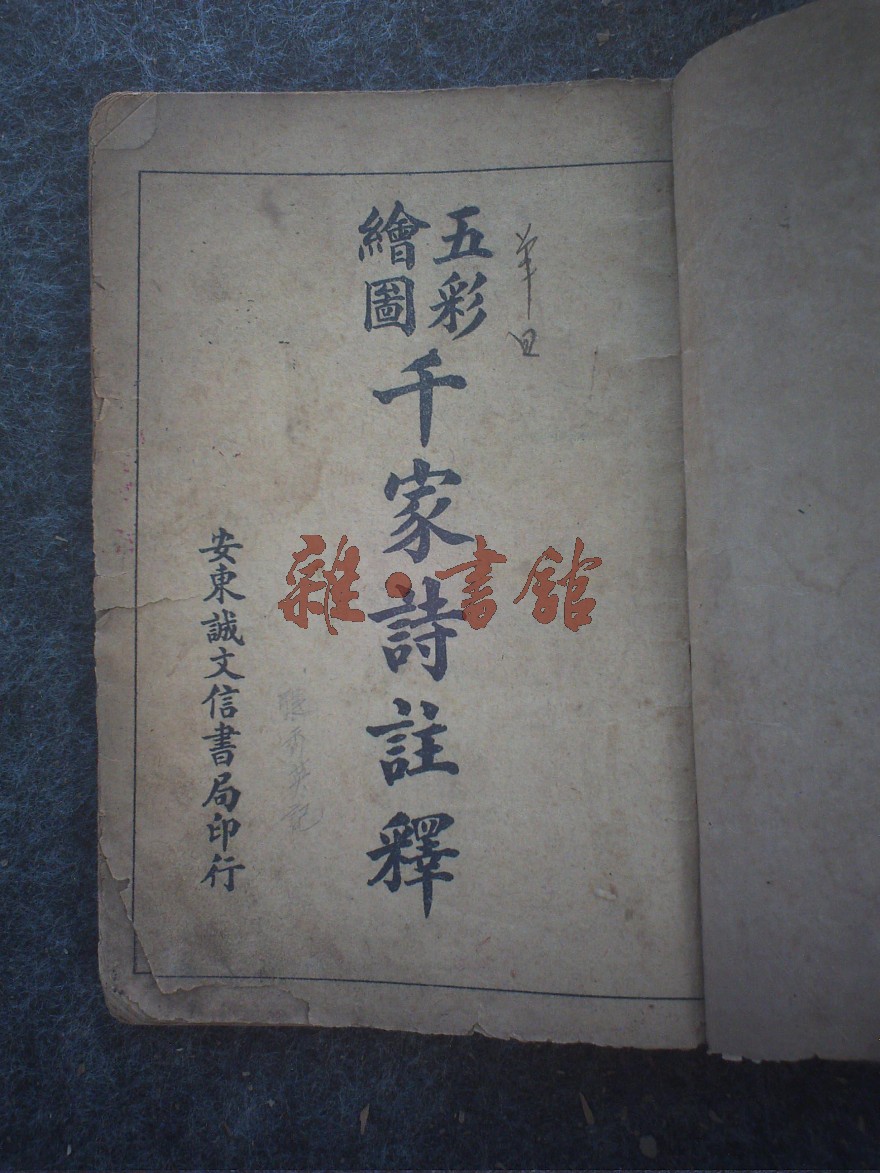 五彩
繪圖
千家詩註釋
安東誠文信書局印行
雜·書館